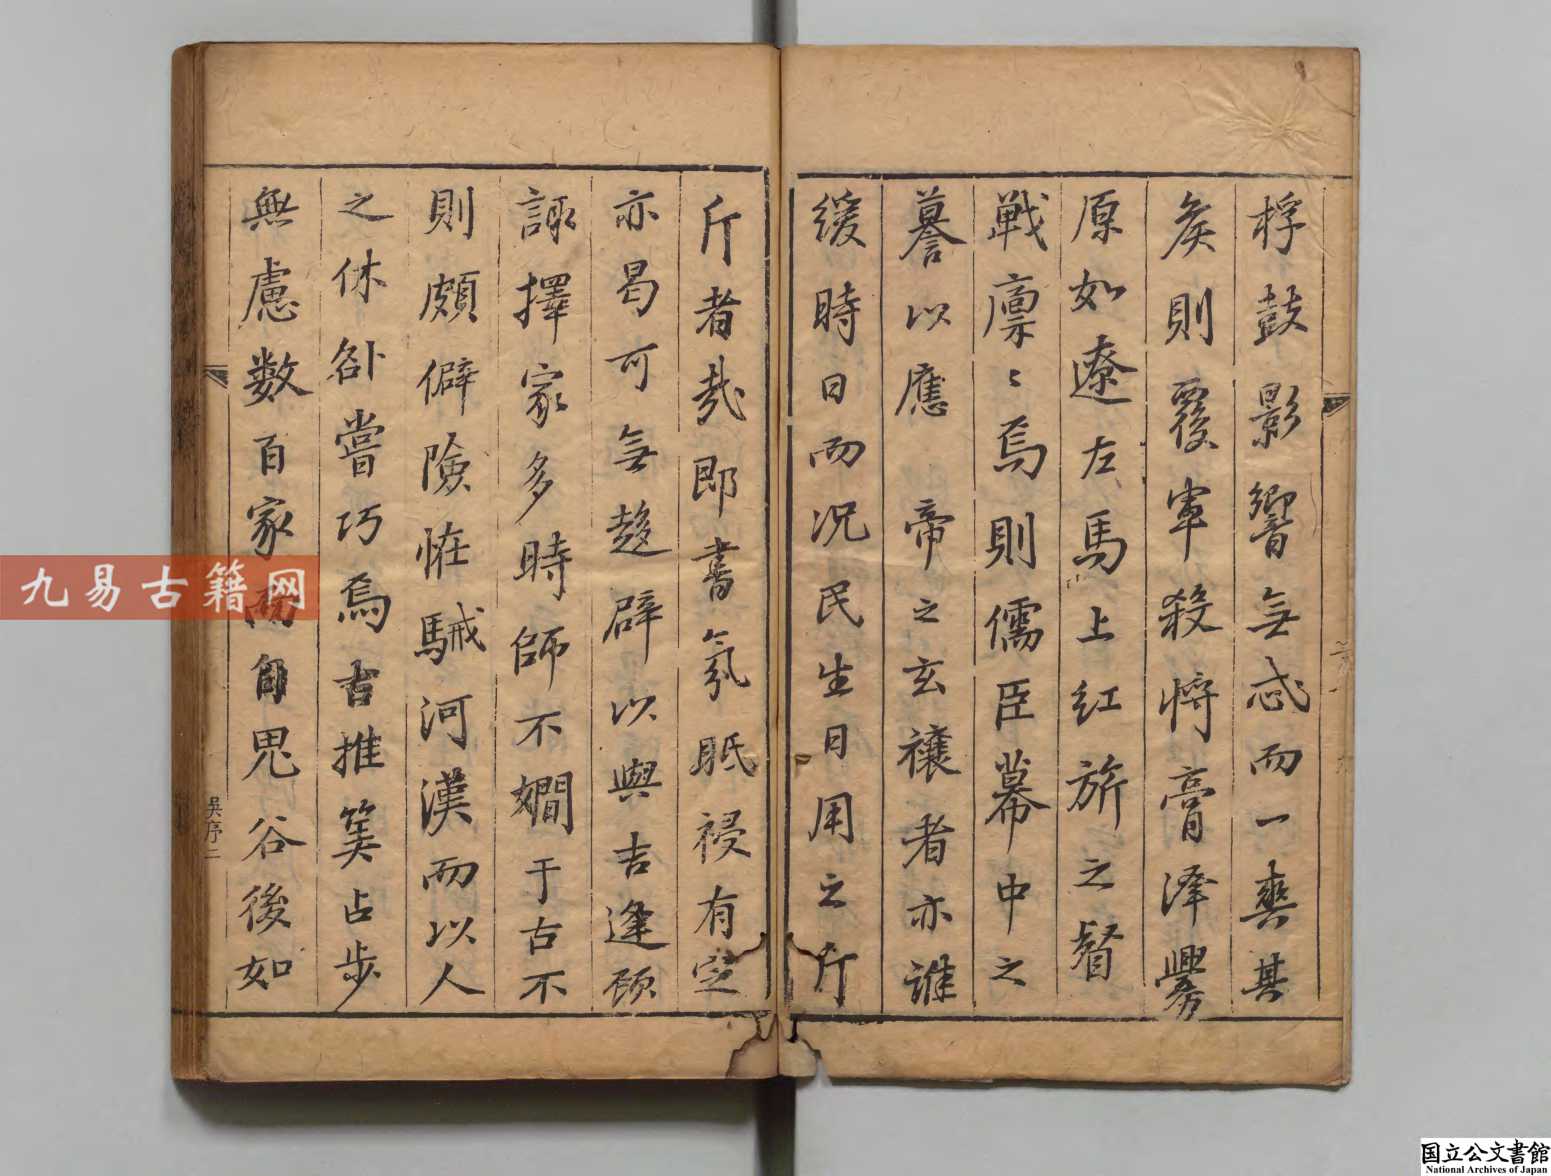 桴鼓影響無忒而一爽其
矦則覆軍殺將膏澤釁
原如遼左馬上紅旂之督
戰凛〻焉則儒臣幕中之
謩以應帝之玄禳者亦誰
緩時日而况民生日用之斤
斤者哉即書氛眂祲有定
亦曷可無趍辟以與吉逢顾
諏擇家多時師不嫺于古不
則頗僻險恠駴河漢而以人
之休咎嘗巧焉古推筭占步
無慮数百家自鬼谷後如
吳序二
九易古籍网
国立公文書館
National Archives of Japan